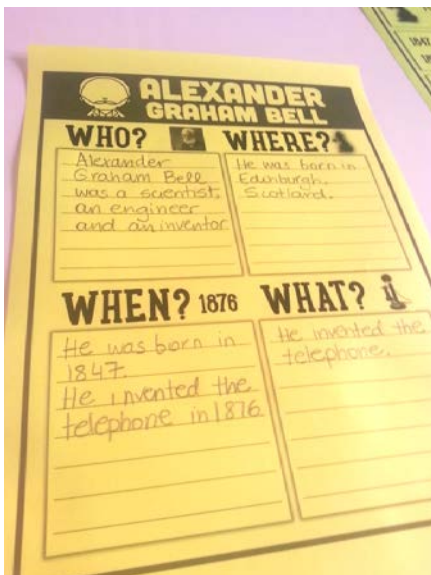 ALEXANDER
GRAHAM BELL
WHO?
Alexander
Graham Bell
was a scientist,
an engineer
and an inventor
WHERE?
He was born in
Edinburgh,
Scotland.
WHEN? 1876
He was born in
1847.
He invented the
telephone in 1876
WHAT?
He invented the
telephone.
1847